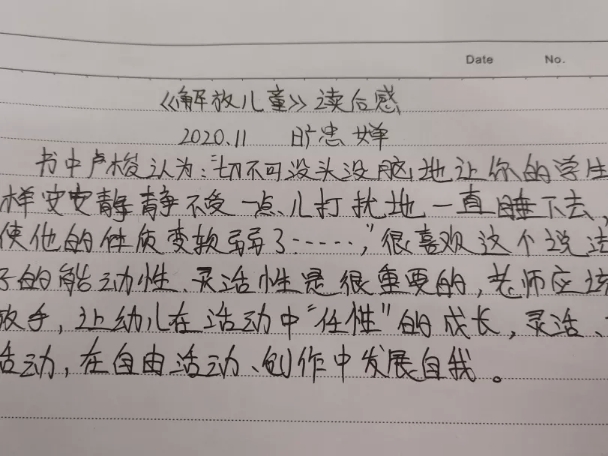 Date No.
《解放儿童》读后感
2020.11 旷忠婵
书中卢梭认为:“切不可没头没脑地让你的学生
样安安静静不受一点儿打扰地一直睡下去,
使他的性质变软弱了……,”很喜欢这个说法
子的能动性、灵活性是很重要的,老师应该
放手,让幼儿在活动中“任性”的成长,灵活、
活动,在自由活动、创作中发展自我。